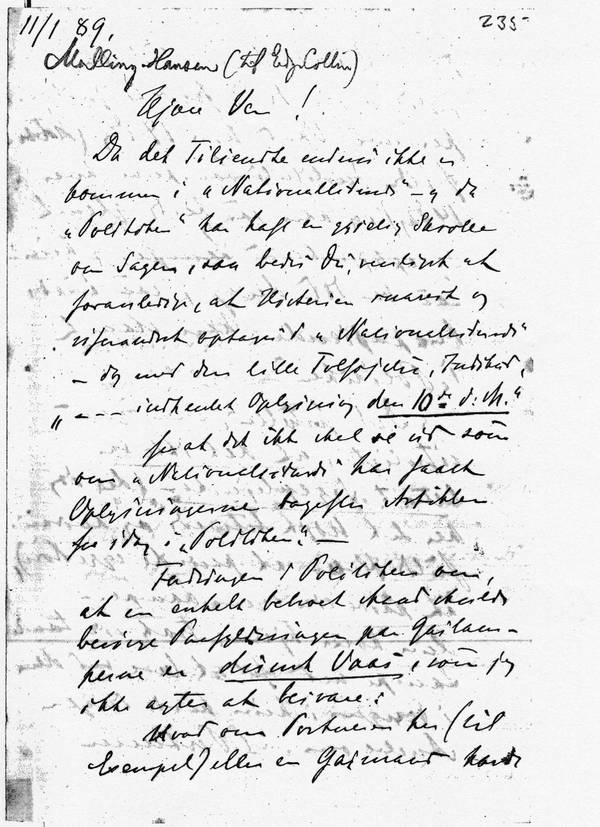 11/1 89.
235
Malling-Hansen (til Edg. Collin)
Kjære Ven!
Da det Tilsendte endnu ikke er
kommen i "Nationaltidende" – og da
"Politiken" har haft en gyselig Skrolle
om Sagen, saa bedes Du venligst at
foranledige, at Historien snarest og
uforandret optages i "Nationaltidende"
– dog med den lille Tilføjelse,
"– – – indhentet Oplysning den 10de d. M."
for at det ikke skal se ud som
om "Nationaltidende" har faaet
Oplysningerne bagefter Artiklen
for idag i "Politiken." –
i Politiken om,
at en enkelt betroet Mand skulde
besørge paa
er dumt Vaas, som jeg
ikke agter at besvare:
Hvad om Portneren her (til
Exempel) eller en Gasmand havde